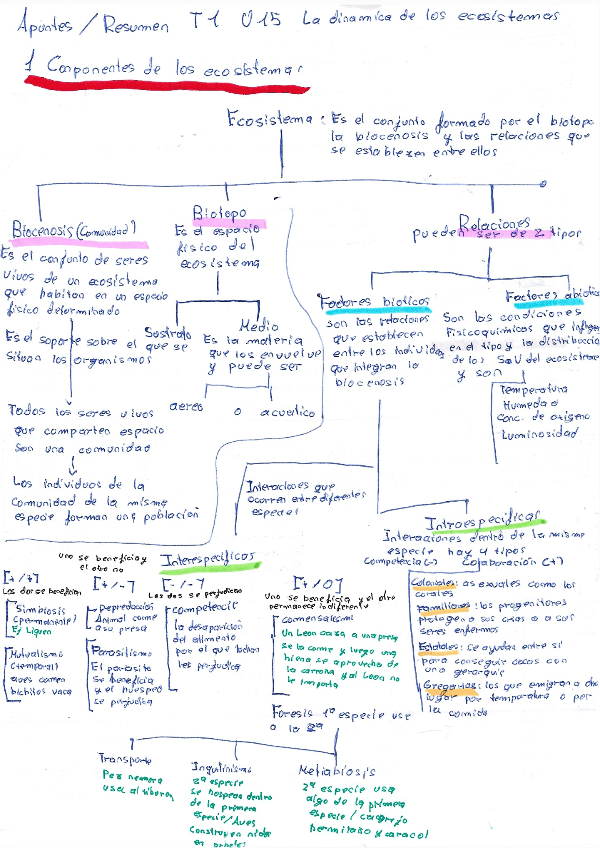 Apuntes / Resumen T1 U15 La dinamica de los ecosistemas
1 Componentes de los ecosistemas
Ecosistema: Es el conjunto formado por el biotopo
la biocenosis y las relaciones que
se establezen entre ellos
Biocenosis (Comunidad)
Es el conjunto de seres
vivos de un ecosistema
que habitan en un espacio
físico determinado
Es el soporte sobre el que se
situan los organismos
Todos los seres vivos
que comparten espacio
son una comunidad
Los individuos de la
Comunidad de la misma
especie forman una población
Biotopo
Es el espacio
físico del
ecosistema
Sostrato
Medio
Es la materia
que los envuelve
y puede ser
aereo o acuatico
Relaciones
pueden ser de 2 tipos
Factores bioticos
son las relaciones
que establecen
entre los individuos
que integran la
biocenosis
Factores abiotica
Son las condiciones
Fisicoquimicos que influyen
en el tipo y la distribuccion
de los SaV del ecosistema
y son
Temperatura
Humedad
Conc. de oxigeno
Luminosidad
Interaciones que
ocurren entre diferentes
especies
Intraespecificas
Interacciones dentro de la misma
especie hay 4 tipos
Competencia (-) Colaboración (+)
Coloniales: asexuales como los
corales
Familiares: los progenitores
protegen a sus crias o a sus
seres enfermos
Estatales: se ayudan entre si
para conseguir cosas con
una gerarquia
Gregarias: los que emigran a otro
lugar por temperatura o por
la comida
Interespecificas
[+/+]
Los dos se benefician
Simbiosis
(permanente)
Ej Liquen
Mutualismo
(temporal)
aves comen
bichitos vaca
uno se beneficia y
el otro no
[+/-]
Depredación
Animal come
a su presa
Parasitismo
El parasito
se beneficia
y el huesped
se perjudica
[-/-]
Los dos se perjudican
competecia
la desaparición
del alimento
por el que luchan
les perjudica
[+/0]
Uno se beneficia y el otro
permanece indiferente
comensalismo
Un Leon caza a una presa
se la come y luego una
hiena se aprovecha de
la carroña y al Leon no
le importa
Foresis 1ª especie use
a la 2ª
Transporte
Pez remora
usa al tiburon
Inquilinismo
2ª especie
se hospeda dentro
de la primera
especie/Aves
Construyen nidos
en arboles
Metabiosis
2ª especie usa
algo de la primera
especie / cangrejo
hermitaño y caracol